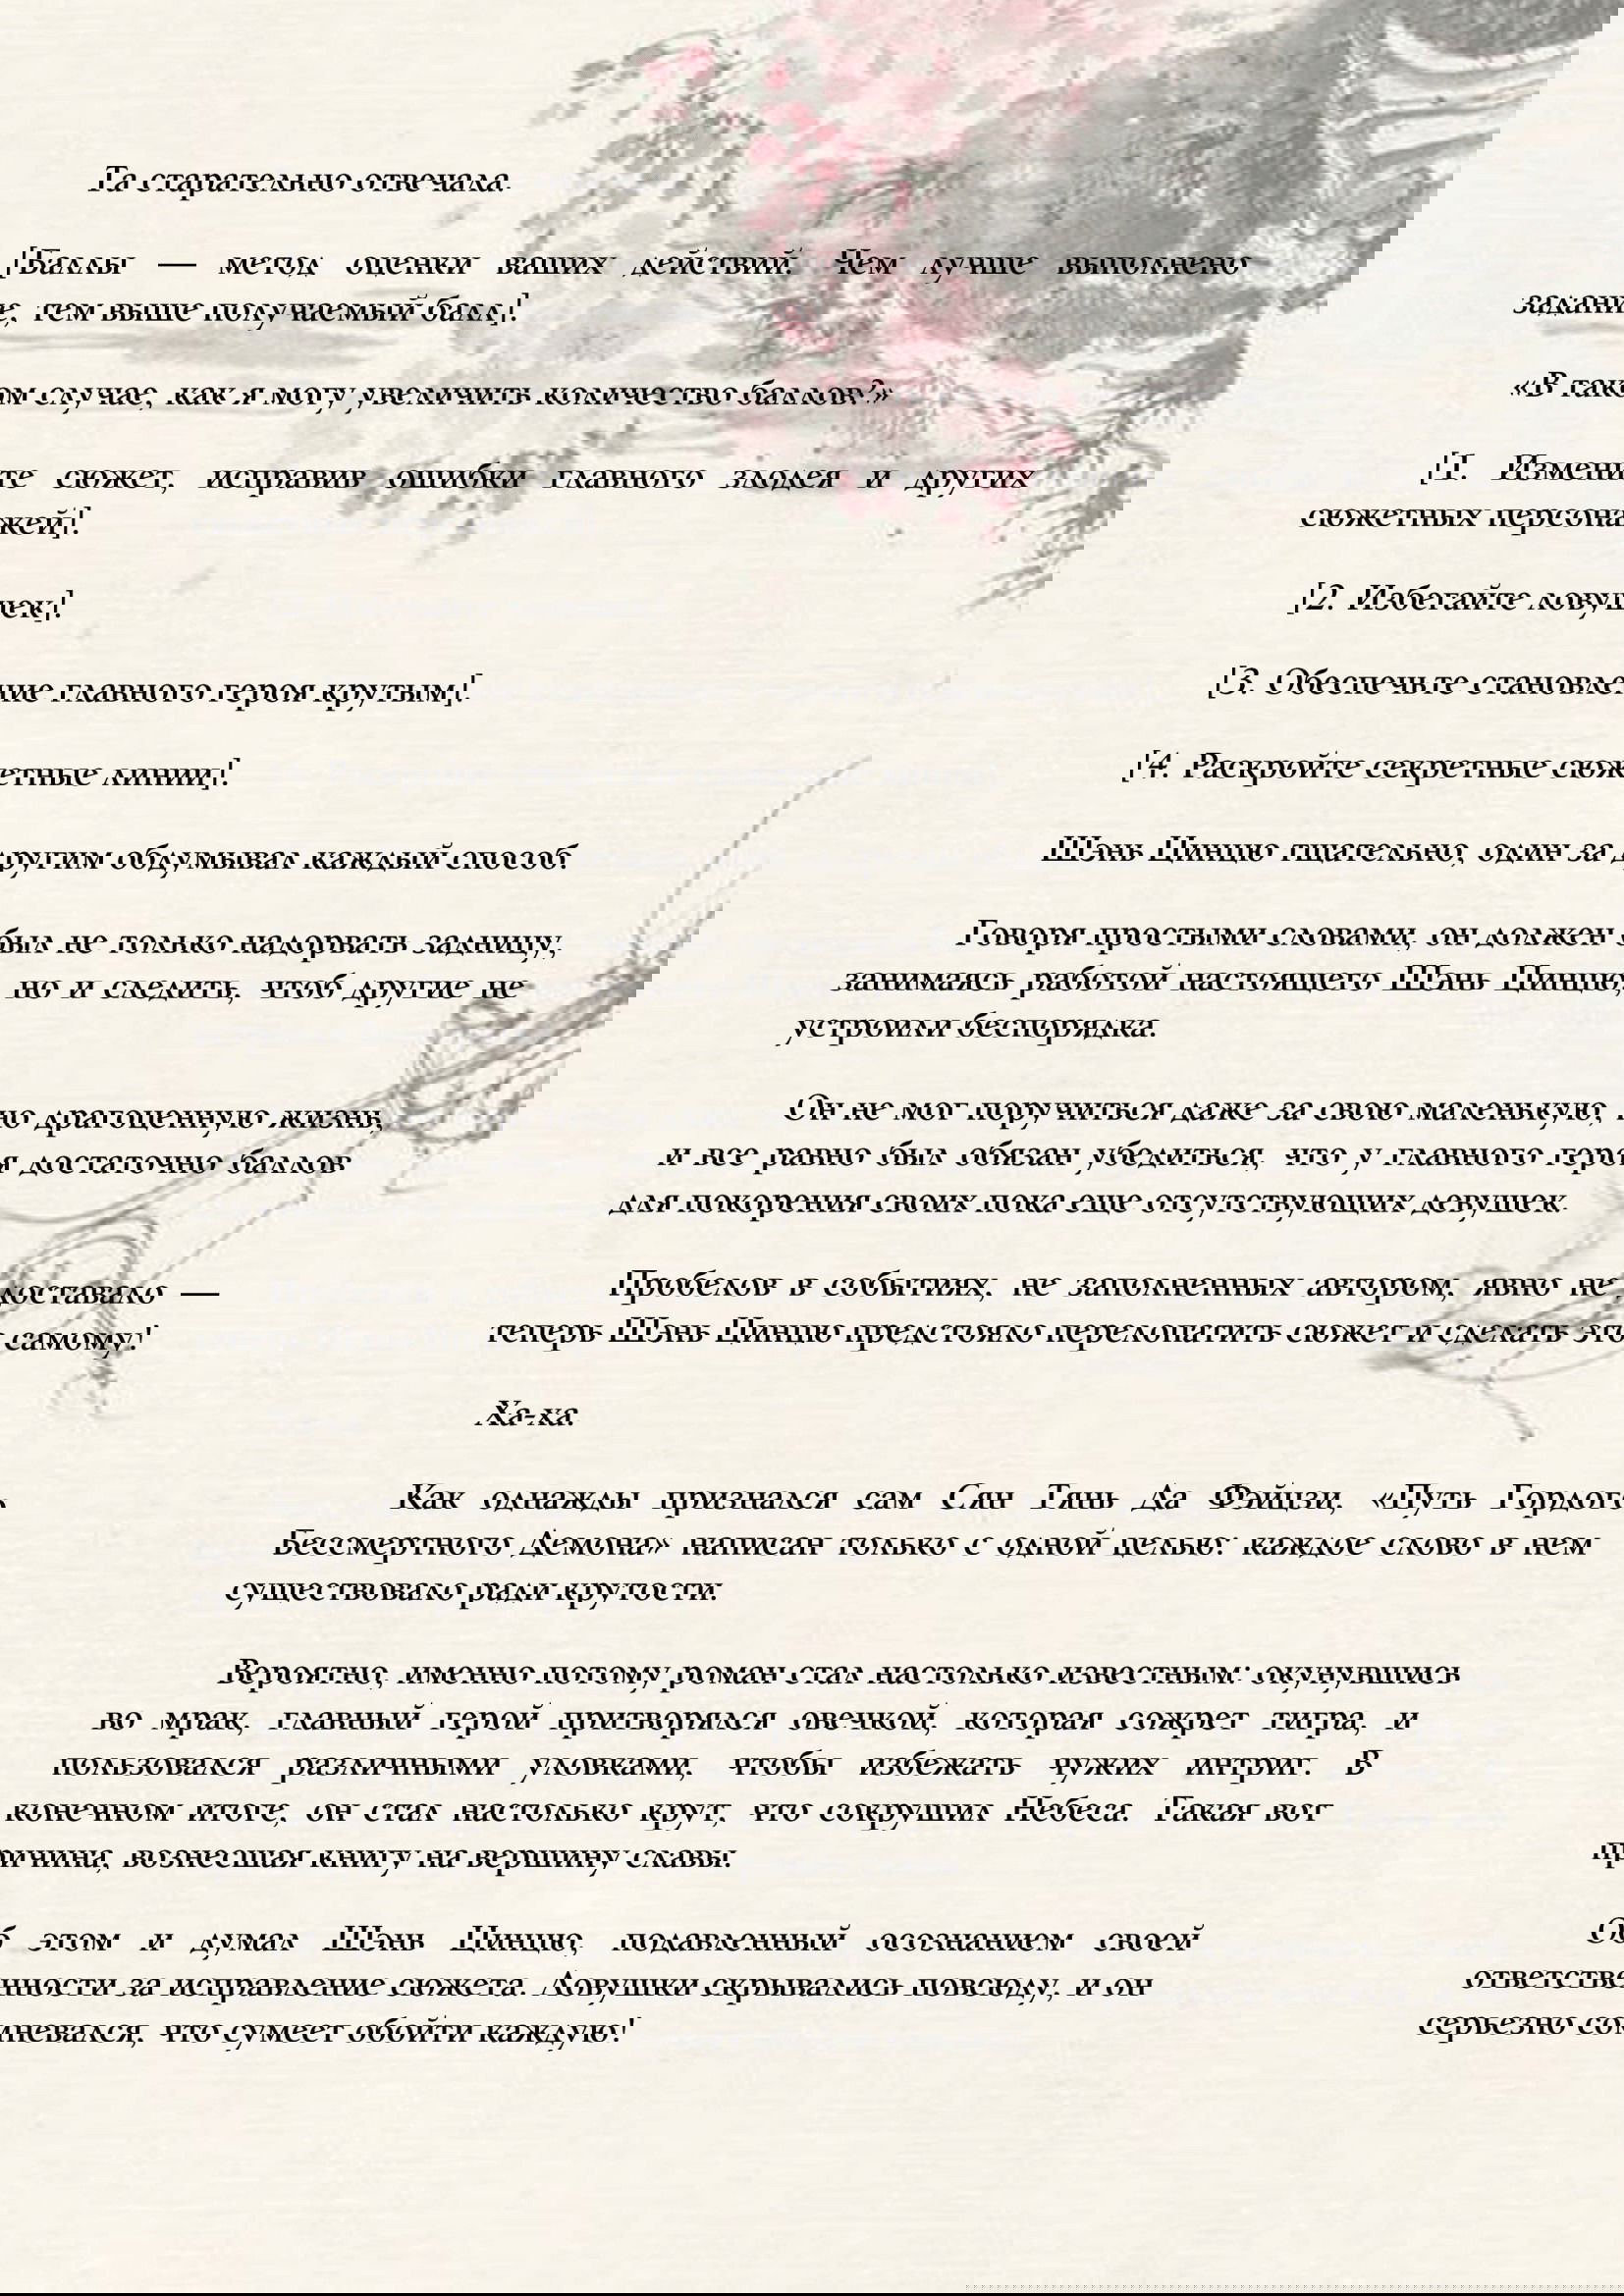 Та старательно отвечала.
[Баллы — метод оценки ваших действий. Чем лучше выполнено
задание, тем выше получаемый балл].
«В таком случае, как я могу увеличить количество баллов?»
[1. Измените сюжет, исправив ошибки главного злодея и других
сюжетных персонажей].
[2. Избегайте ловушек].
[3. Обеспечьте становление главного героя крутым].
[4. Раскройте секретные сюжетные линии].
Шэнь Цинцю тщательно, один за другим обдумывал каждый способ.
Говоря простыми словами, он должен был не только надорвать задницу,
занимаясь работой настоящего Шэнь Цинцю, но и следить, чтоб другие не
устроили беспорядка.
Он не мог поручиться даже за свою маленькую, но драгоценную жизнь,
и все равно был обязан убедиться, что у главного героя достаточно баллов
для покорения своих пока еще отсутствующих девушек.
Пробелов в событиях, не заполненных автором, явно не доставало —
теперь Шэнь Цинцю предстояло перелопатить сюжет и сделать это самому!
Ха-ха.
Как однажды признался сам Сян Тянь Да Фэйцзи, «Путь Гордого
Бессмертного Демона» написан только с одной целью: каждое слово в нем
существовало ради крутости.
Вероятно, именно потому роман стал настолько известным: окунувшись
во мрак, главный герой притворялся овечкой, которая сожрет тигра, и
пользовался различными уловками, чтобы избежать чужих интриг. В
конечном итоге, он стал настолько крут, что сокрушил Небеса. Такая вот
причина, вознесшая книгу на вершину славы.
Об этом и думал Шэнь Цинцю, подавленный осознанием своей
ответственности за исправление сюжета. Ловушки скрывались повсюду, и он
серьезно сомневался, что сумеет обойти каждую!